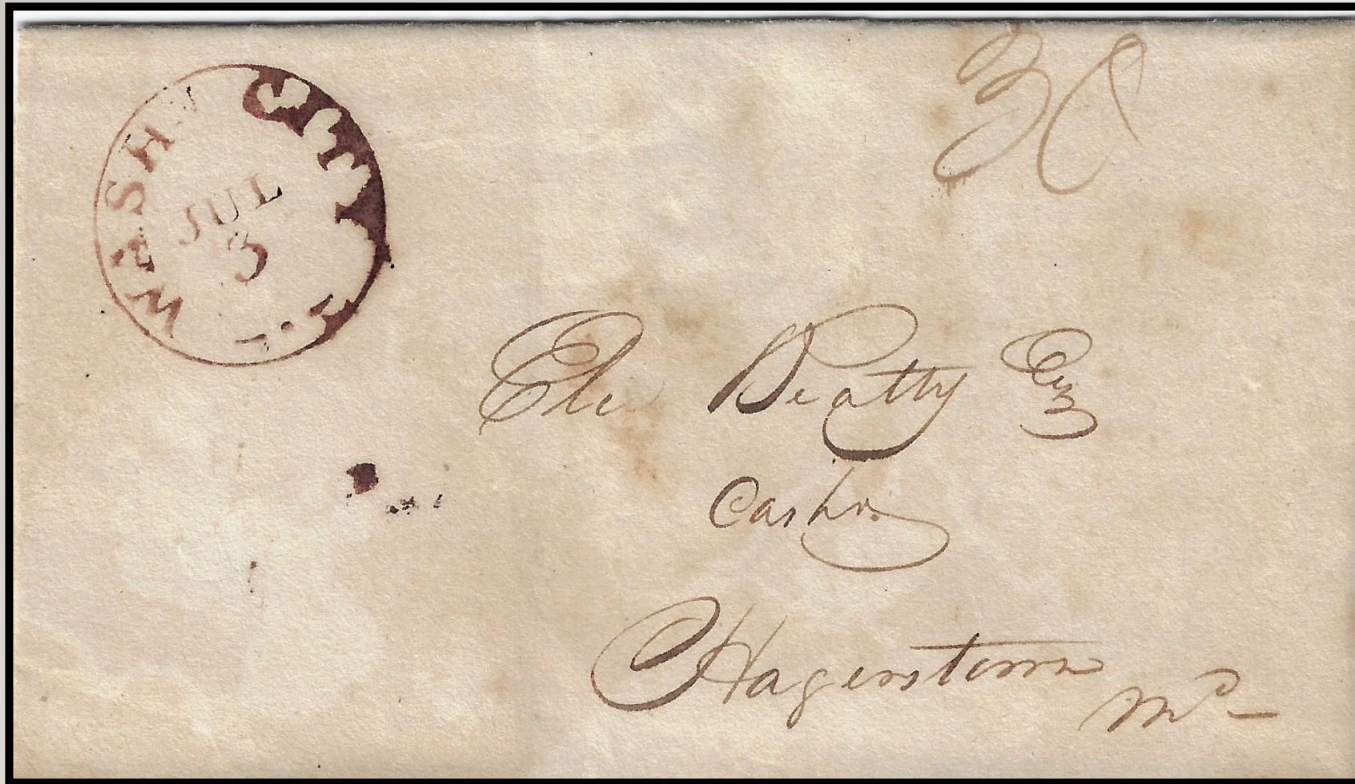 WASHN CITY
JUL
3
Elie Beatty Esq
Cashr.
Hagerstown
Md